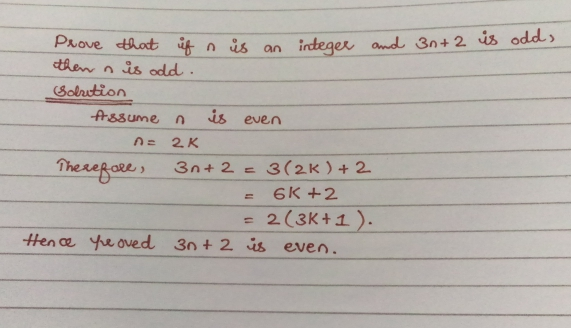 Prove that if n is an integer and 3n+2 is odd,
then n is odd.
Solution
Assume n is even
n = 2K
Therefore, 3n+2 = 3(2K)+2
= 6K+2
= 2(3K+1).
Hence proved 3n+2 is even.